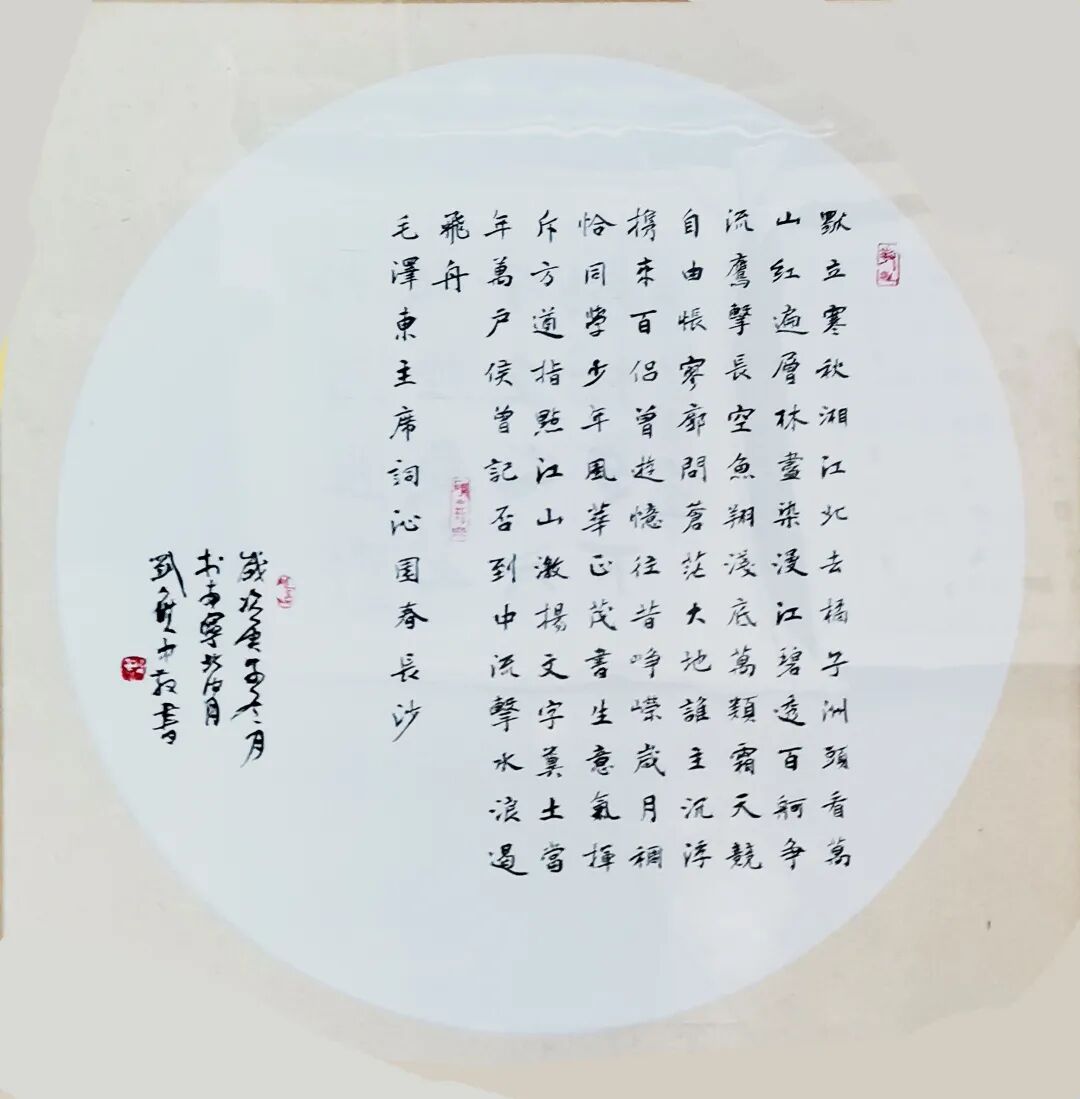 默立寒秋湘江北去橘子洲頭看萬
山红遍層林盡染漫江碧透百舸争
流鷹擊長空魚翔淺底萬類霜天競
自由悵寥廓問蒼茫大地誰主沉浮
携來百侣曾遊憶往昔崢嶸歲月稠
恰同學少年風華正茂書生意氣揮
斥方道指點江山激揚文字糞土當
年萬户侯曾記否到中流擊水浪遏
飛舟
毛澤東主席詞沁園春長沙
歲次庚子冬月
南寧北
劉中敬書